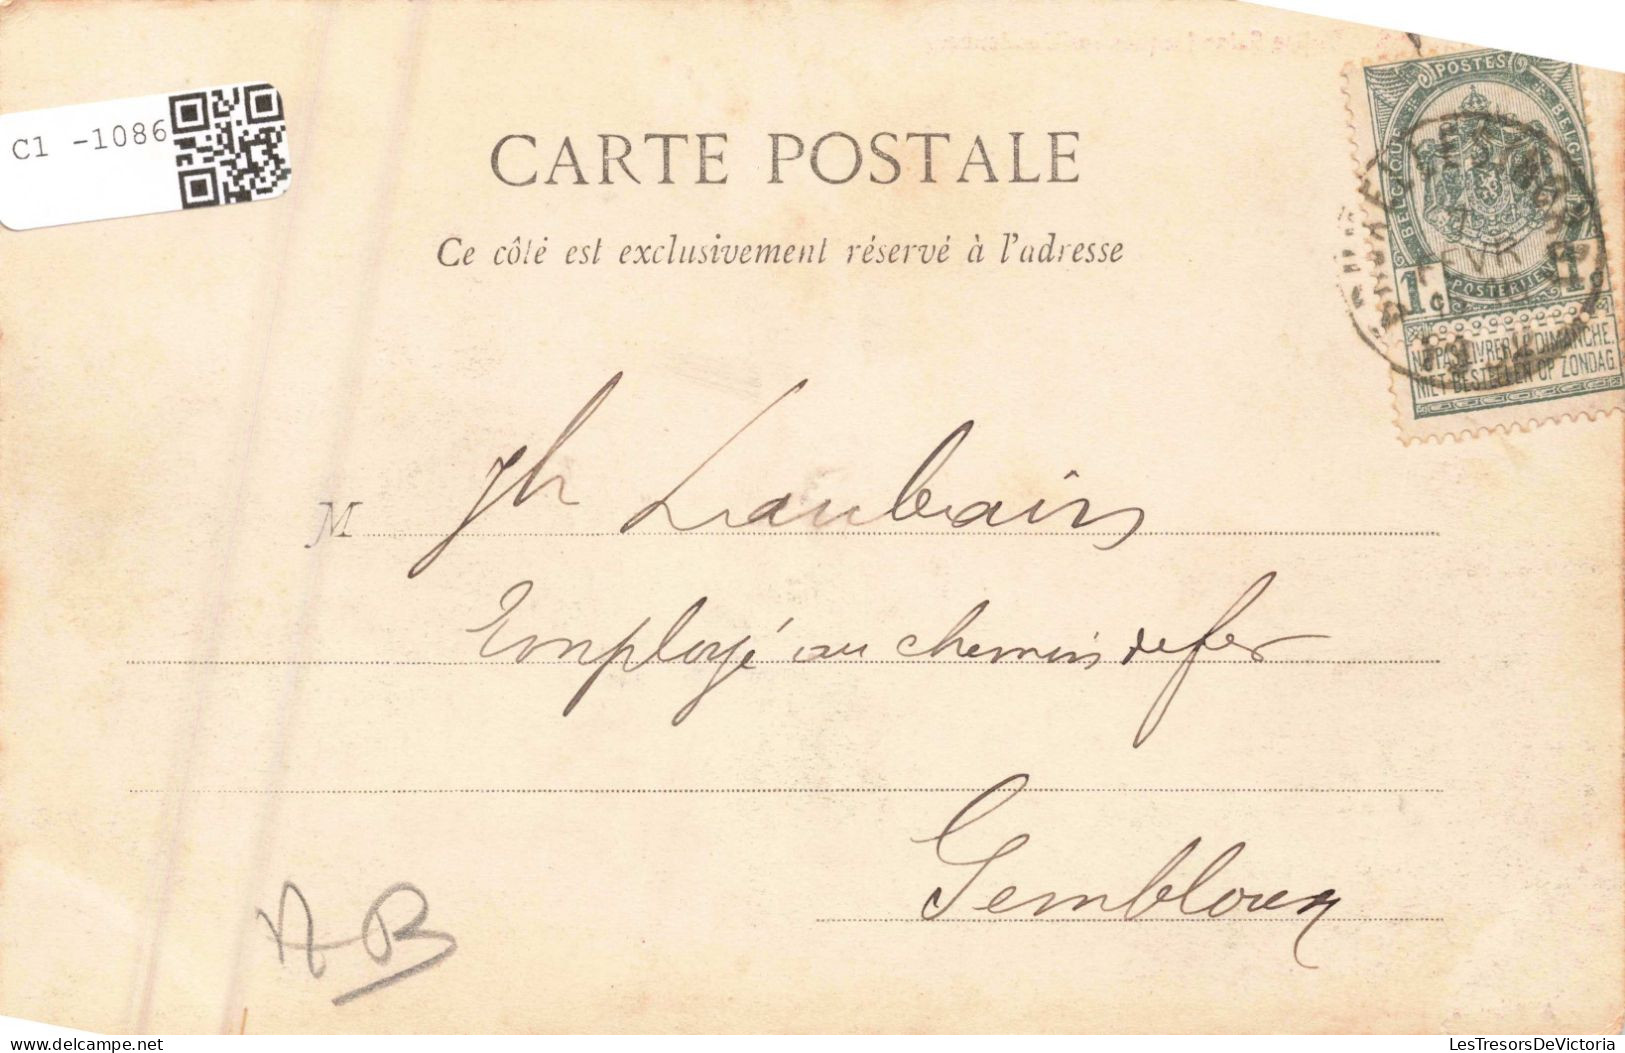 C1 -1086
CARTE POSTALE
Ce côté est exclusivement réservé à l'adresse
POSTES
BELGIQUE
POSTERIJEN
1 1
NE PAS LIVRER LE DIMANCHE.
NIET BESTELLEN OP ZONDAG
FEVR
M Jh Laubain
Employé au chemin de fer
Gembloux
LesTresorsDeVictoria